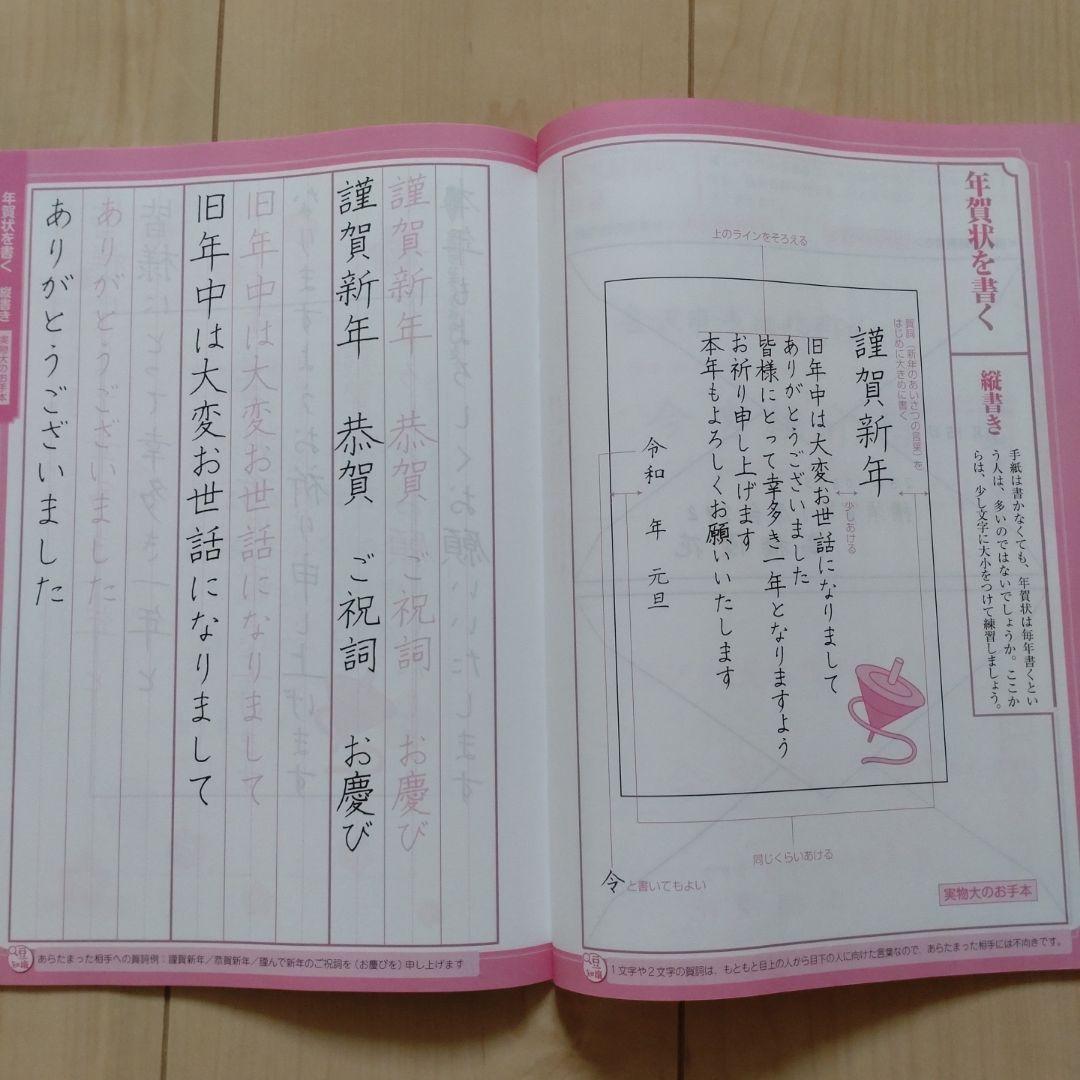 年賀状を書く
縦書き
手紙は書かなくても、年賀状は毎年書くとい
う人は、多いのではないでしょうか。ここか
らは、少し文字に大小をつけて練習しましょう。
上のラインをそろえる
賀詞（新年のあいさつの言葉）を
はじめに大きめに書く
謹賀新年
少しあける
旧年中は大変お世話になりまして
ありがとうございました
皆様にとって幸多き一年となりますよう
お祈り申し上げます
本年もよろしくお願いいたします
令和 年 元旦
同じくらいあける
令と書いてもよい
実物大のお手本
豆知識
1文字や2文字の賀詞は、もともと目上の人から目下の人に向けた言葉なので、あらたまった相手には不向きです。
謹賀新年 恭賀 ご祝詞 お慶び
謹賀新年 恭賀 ご祝詞 お慶び
旧年中は大変お世話になりまして
旧年中は大変お世話になりまして
ありがとうございました
ありがとうございました
年賀状を書く 縦書き 実物大のお手本
豆知識
あらたまった相手への賀詞例：謹賀新年／恭賀新年／謹んで新年のご祝詞を（お慶びを）申し上げます